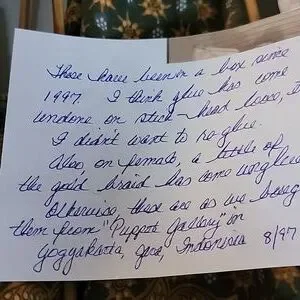 These have been in a box since
1997. I think glue has come
undone on stick - head loose,
I didn't want to re-glue.
Also, on female, a little of
the gold braid has come unglued
Otherwise these are as we bought
them from "Puppet Gallery" in
Jogyakarta, Java, Indonesia 8/97